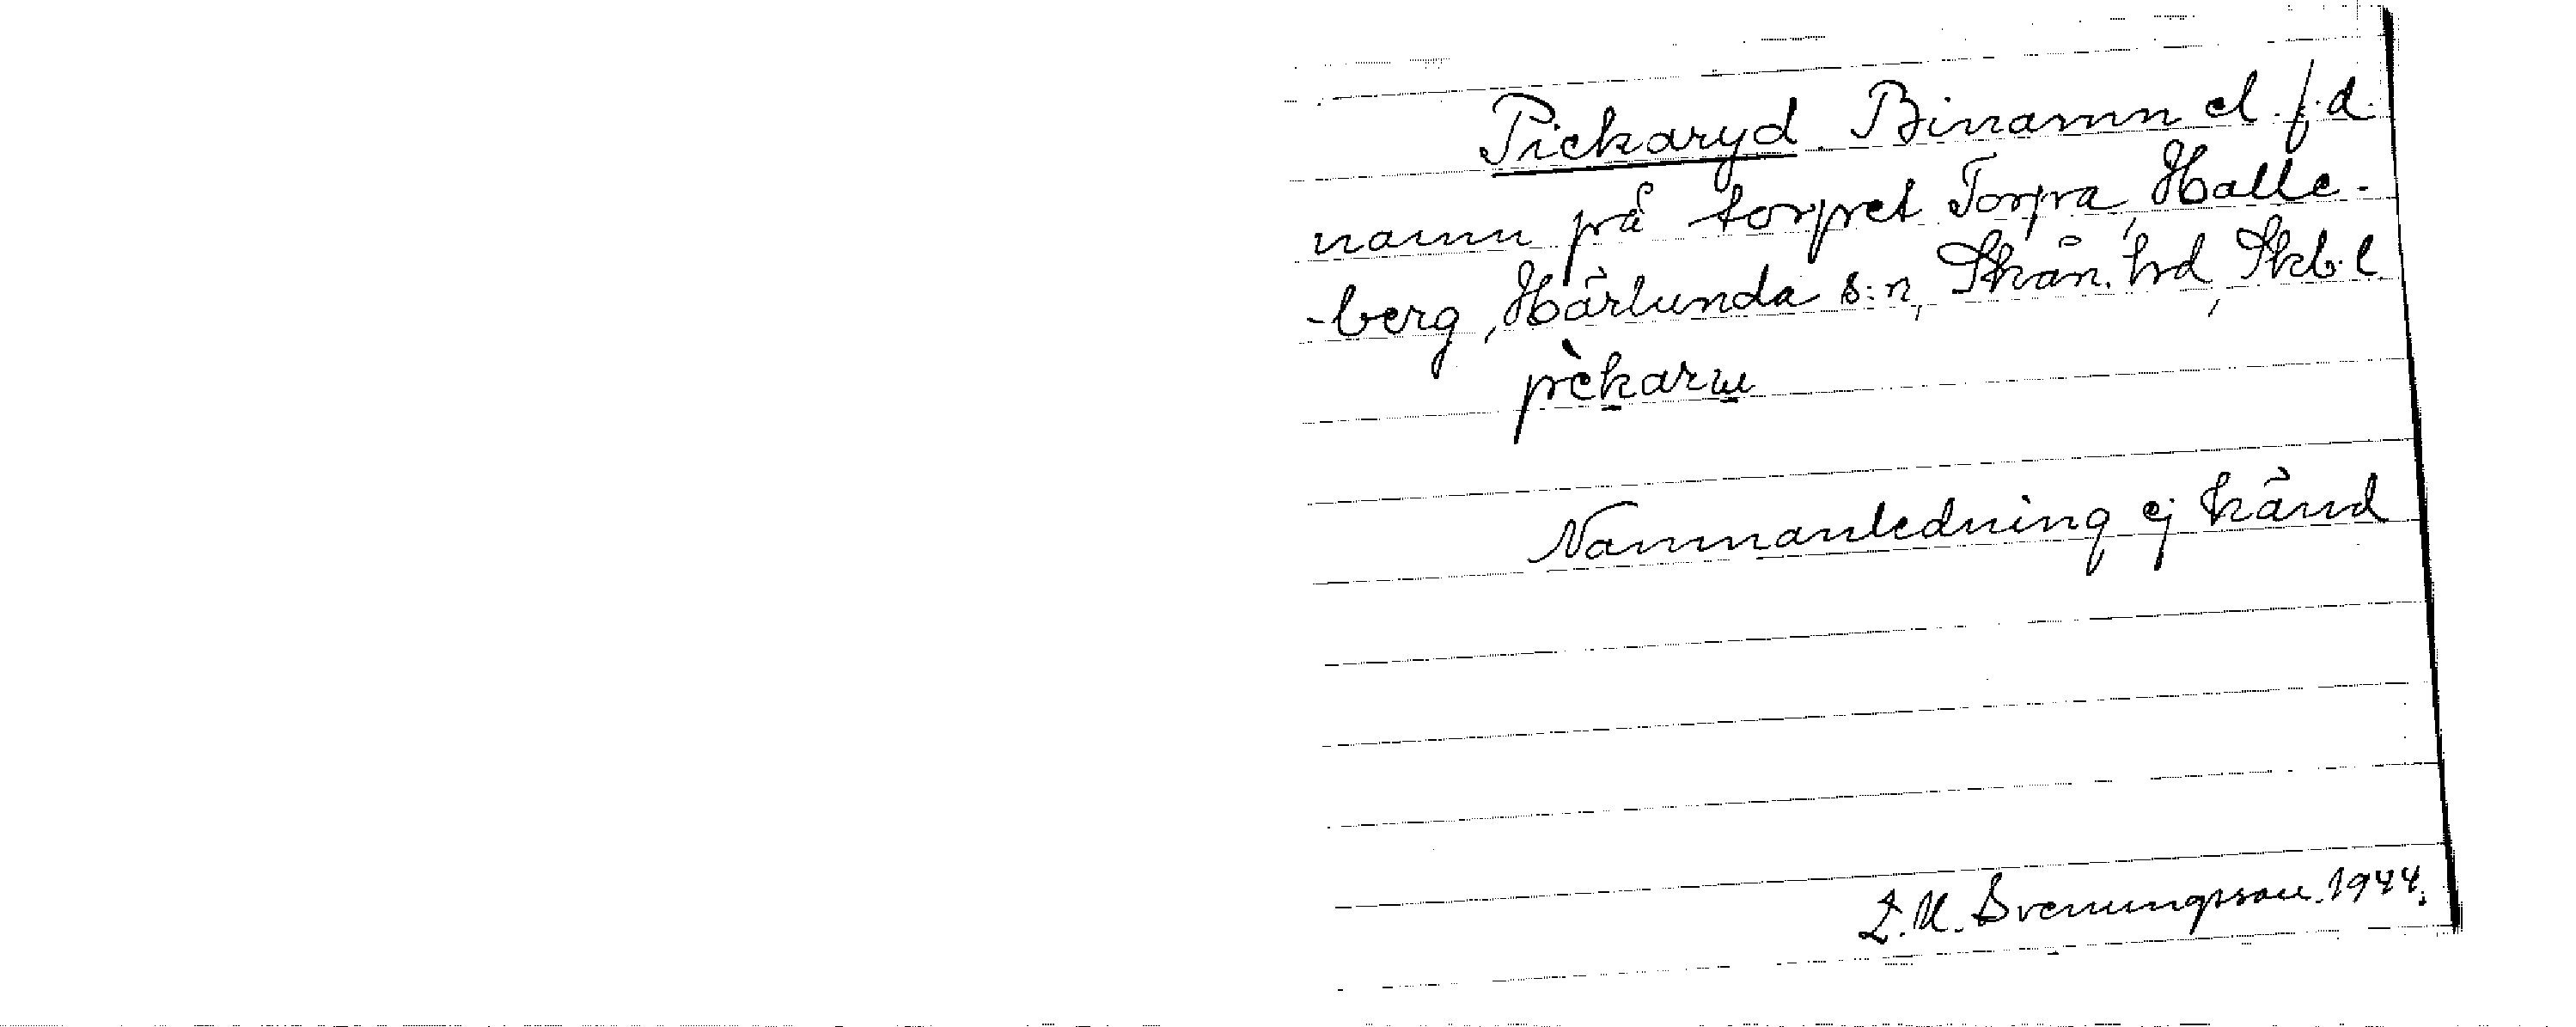 Pickaryd. Binamn el. f.d.
namn på torpet Torpa, Halle-
-berg, Härlunda s:n, Skån. hrd, Skb.l.
pèkarɯ
Namnanledning ej känd
L.U. Svenungsson. 1944.